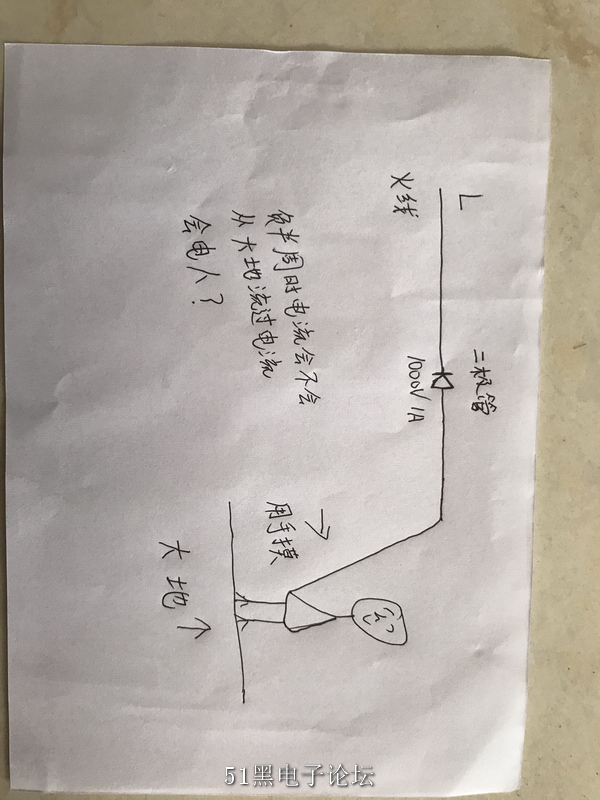 L
火线
二极管
1000V 1A
负半周时电流会不会
从大地流过电流
会电人?
用手摸
大地
51黑电子论坛